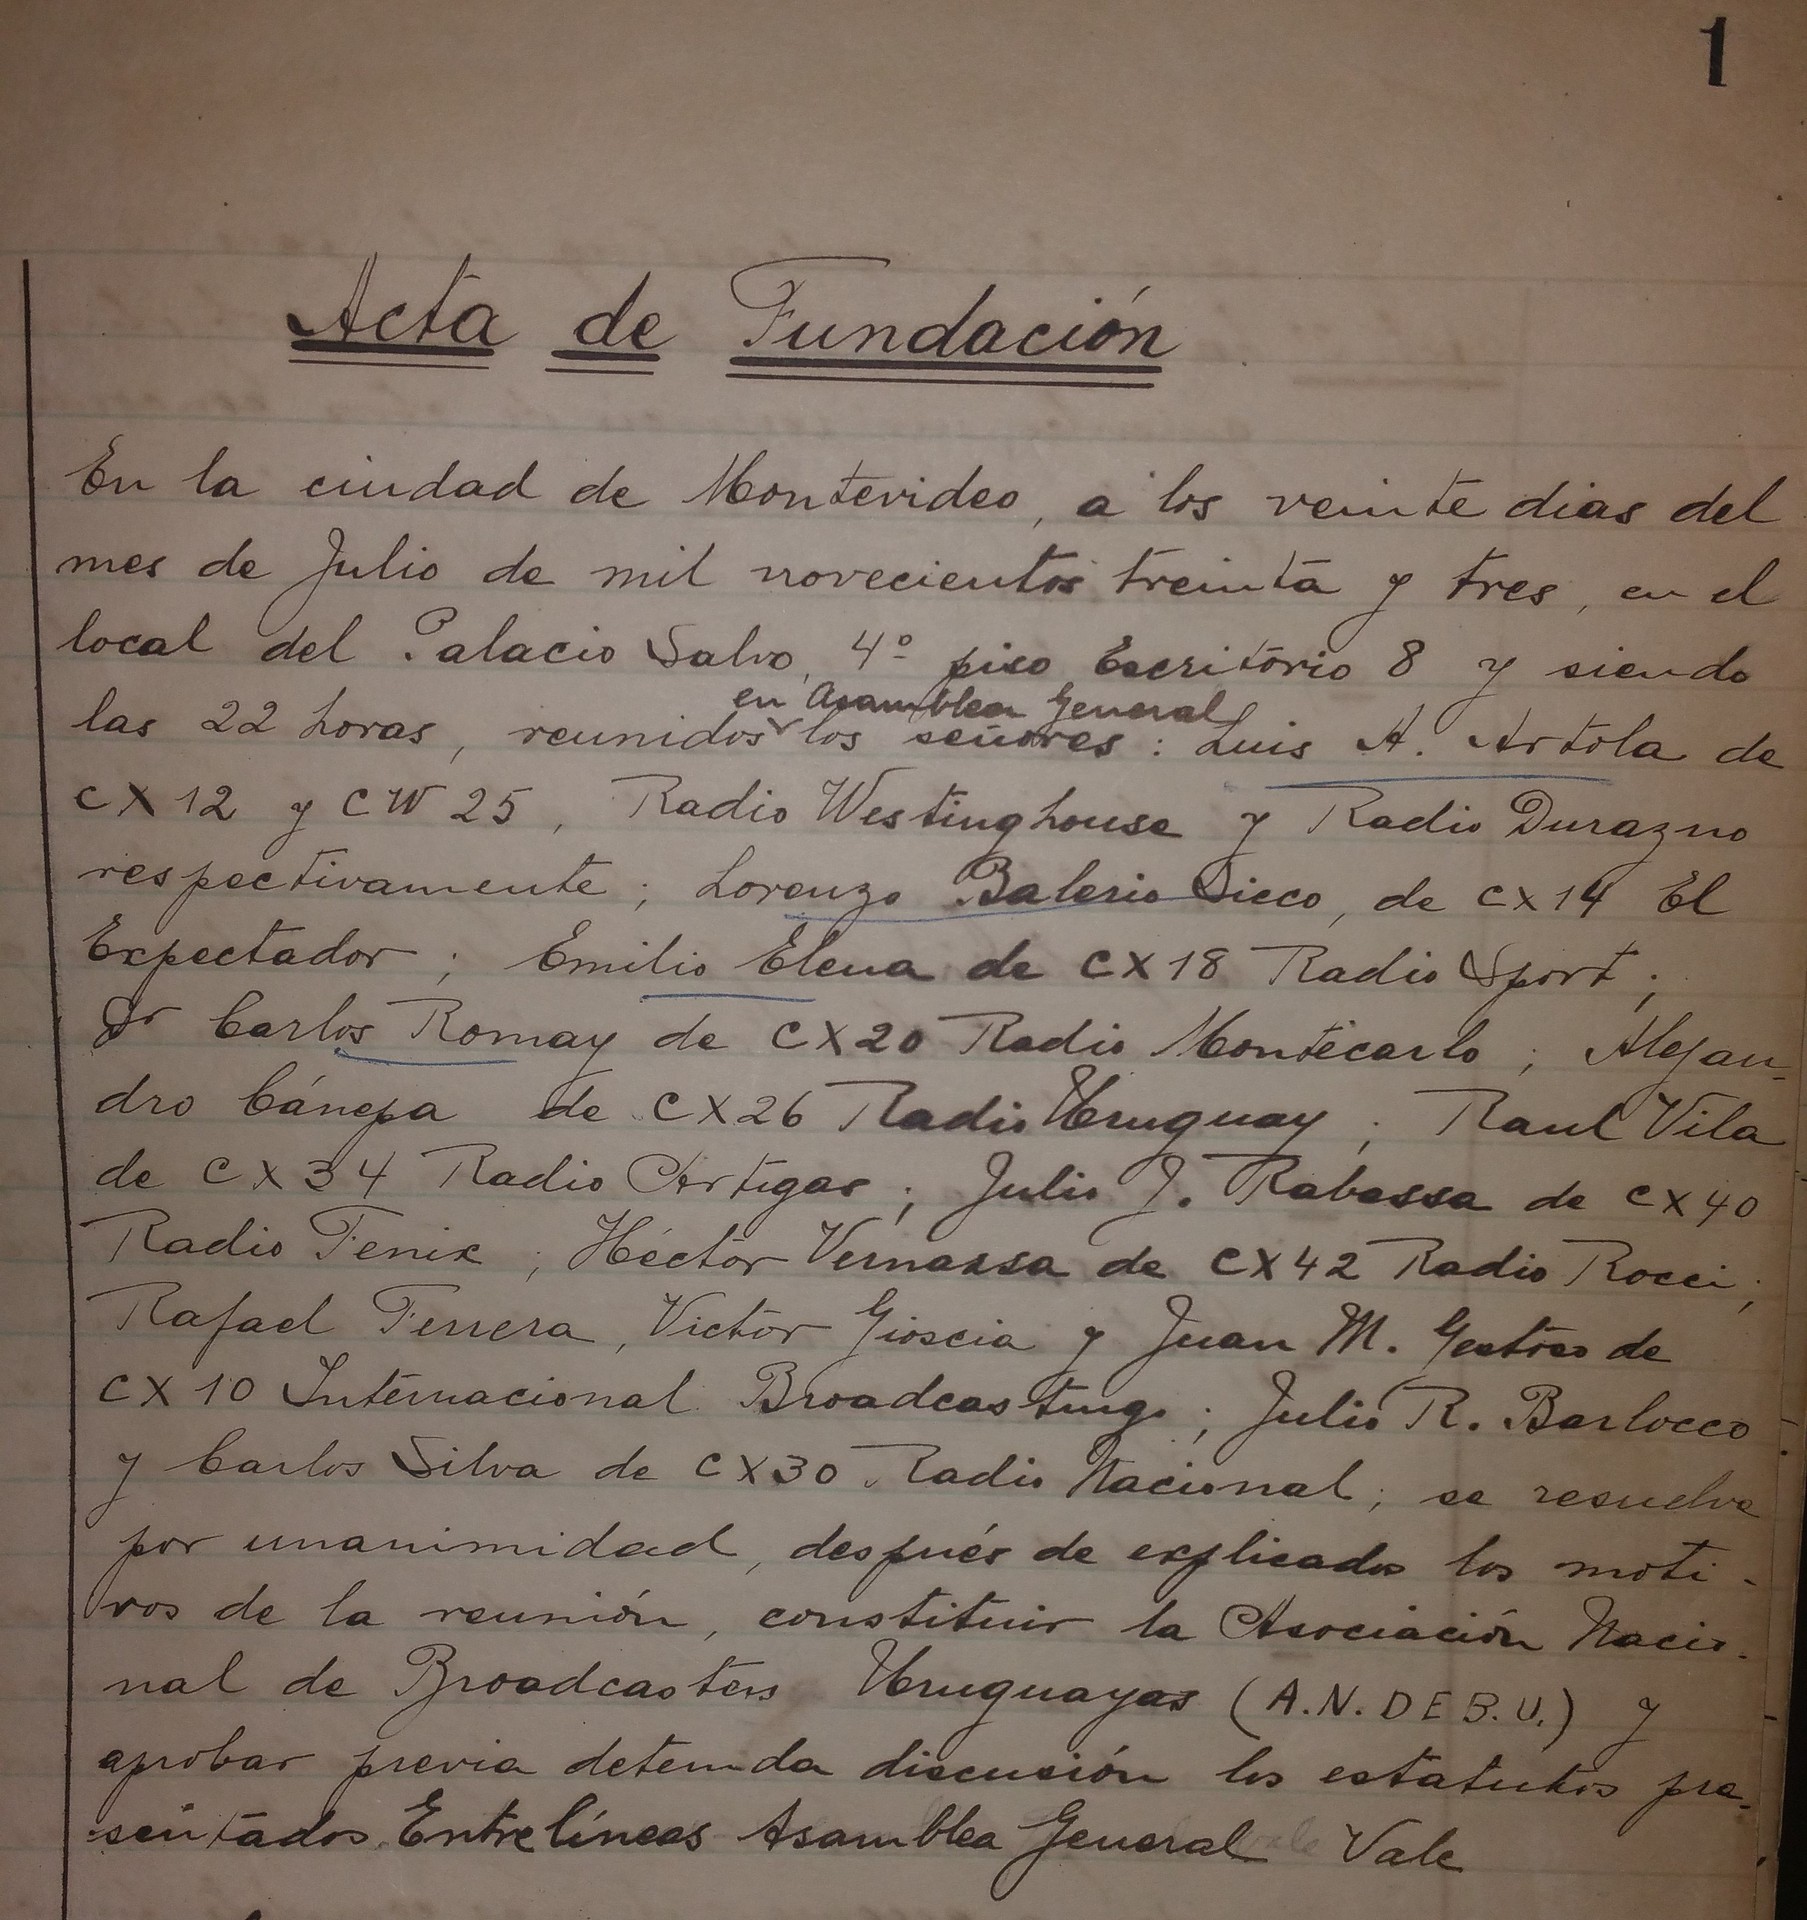 1
Acta de Fundación
En la ciudad de Montevideo, a los veinte dias del
mes de Julio de mil novecientos treinta y tres, en el
local del Palacio Salvo, 4º piso Escritorio 8 y siendo
en Asamblea General
las 22 horas, reunidos los señores: Luis A. Artola de
CX12 y CW25, Radio Westinghouse y Radio Durazno
respectivamente; Lorenzo Balerio Sicco, de CX14 El
Expectador; Emilio Elena de CX18 Radio Sport;
Dr Carlos Romay de CX20 Radio Montecarlo; Alejan-
dro Cánepa de CX26 Radio Uruguay; Raul Vila
de CX34 Radio Artigas; Julio J. Rabassa de CX40
Radio Fenix; Héctor Vernazza de CX42 Radio Rocci;
Rafael Ferrera, Victor Gioscia y Juan M. Gestoso de
CX10 Internacional Broadcasting; Julio R. Barlocco
y Carlos Silva de CX30 Radio Nacional; se resuelve
por unanimidad, después de explicados los moti-
vos de la reunión, constituir la Asociación Nacio-
nal de Broadcasters Uruguayas (A.N.DEB.U.) y
aprobar previa detenida discusión los estatutos pre-
sentados. Entrelíneas Asamblea General Vale